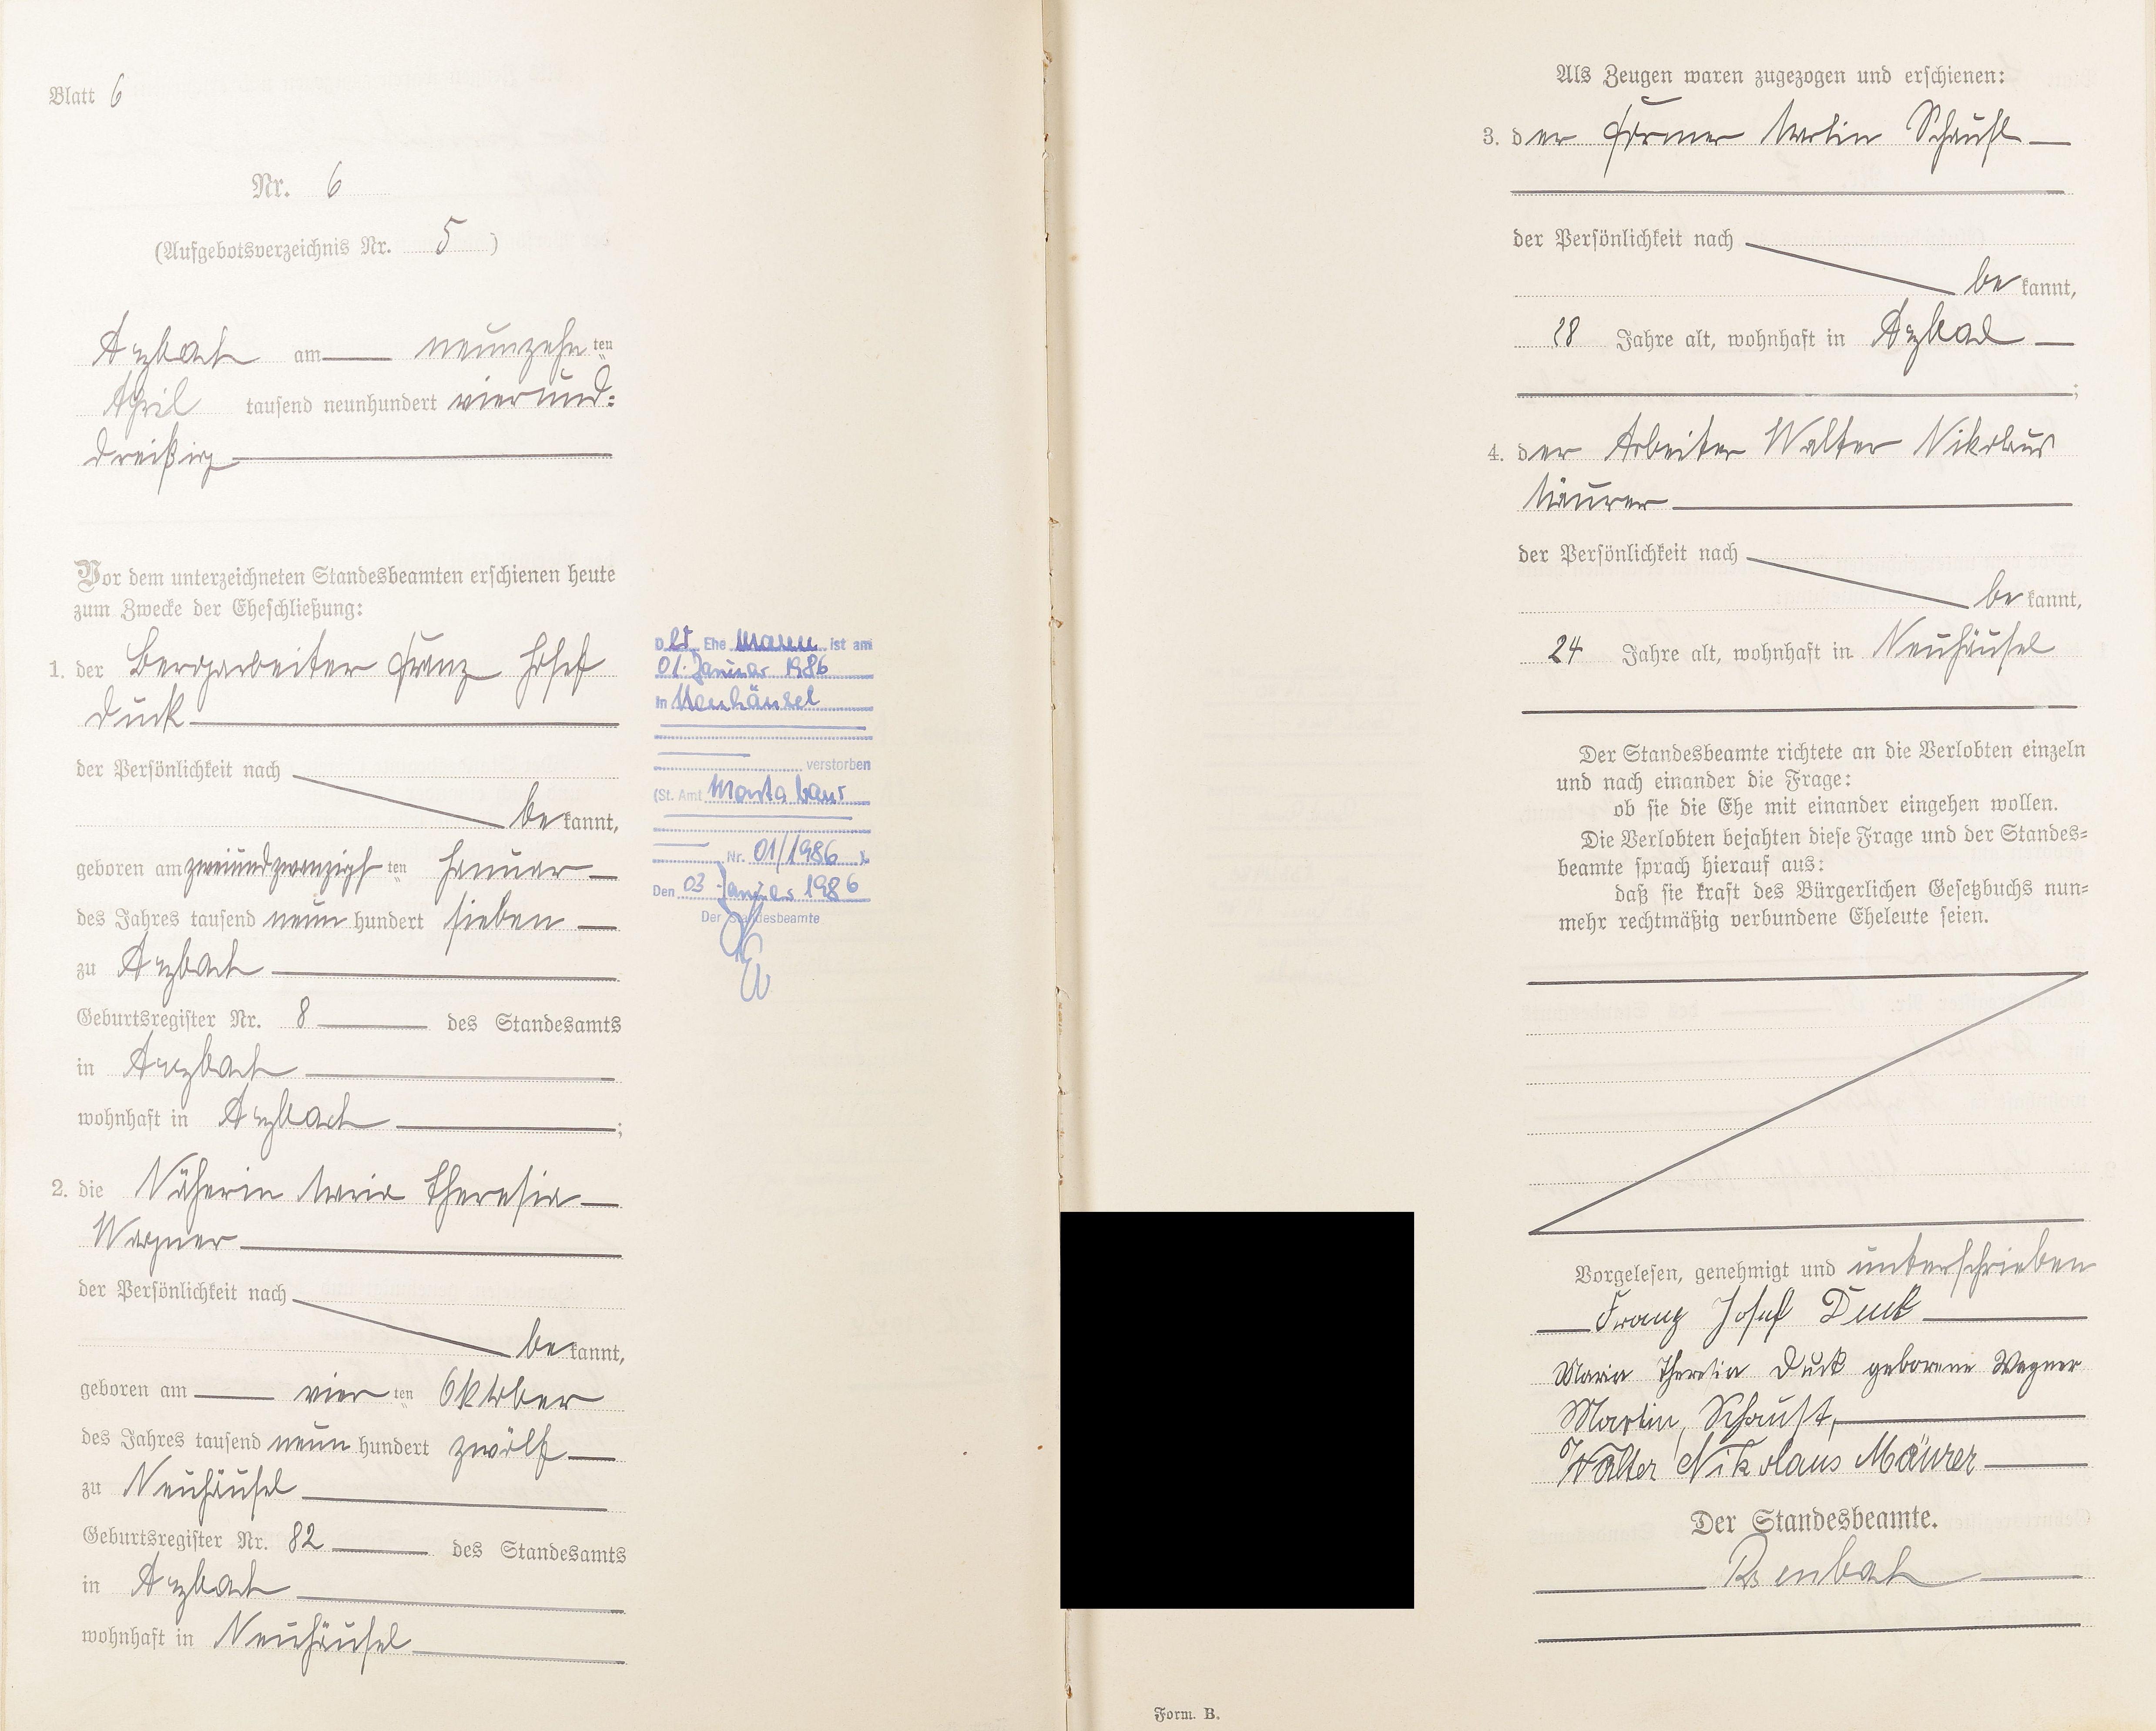 Blatt 6
Nr. 6
(Aufgebotsverzeichnis Nr. 5)
Arzbach am neunzehnten
April tausend neunhundert vierund=
dreißig
Vor dem unterzeichneten Standesbeamten erschienen heute
zum Zwecke der Eheschließung:
1. der Bergarbeiter Franz Josef
Duck
der Persönlichkeit nach
bekannt,
geboren am zweiundzwanzigsten Januar
des Jahres tausend neunhundert sieben
zu Arzbach
Geburtsregister Nr. 8 des Standesamts
in Arzbach
wohnhaft in Arzbach;
2. die Näherin Maria Theresia
Wagner
der Persönlichkeit nach
bekannt,
geboren am vierten Oktober
des Jahres tausend neunhundert zwölf
zu Neuhäusel
Geburtsregister Nr. 82 des Standesamts
in Arzbach
wohnhaft in Neuhäusel
Der Ehe Mann ist am
01. Januar 1986
in Neuhäusel
verstorben
(St. Amt Montabaur
Nr. 01/1986
Den 03. Januar 1986
Der Standesbeamte
Als Zeugen waren zugezogen und erschienen:
3. der Former Martin Schaust
der Persönlichkeit nach
bekannt,
28 Jahre alt, wohnhaft in Arzbach
;
4. der Arbeiter Walter Nikolaus
Mäurer
der Persönlichkeit nach
bekannt,
24 Jahre alt, wohnhaft in Neuhäusel
Der Standesbeamte richtete an die Verlobten einzeln
und nach einander die Frage:
ob sie die Ehe mit einander eingehen wollen.
Die Verlobten bejahten diese Frage und der Standes=
beamte sprach hierauf aus:
daß sie kraft des Bürgerlichen Gesetzbuchs nun=
mehr rechtmäßig verbundene Eheleute seien.
Vorgelesen, genehmigt und unterschrieben
Franz Josef Duck
Maria Theresia Duck geborene Wagner
Martin Schaust,
Walter Nikolaus Mäurer
Der Standesbeamte.
Form. B.